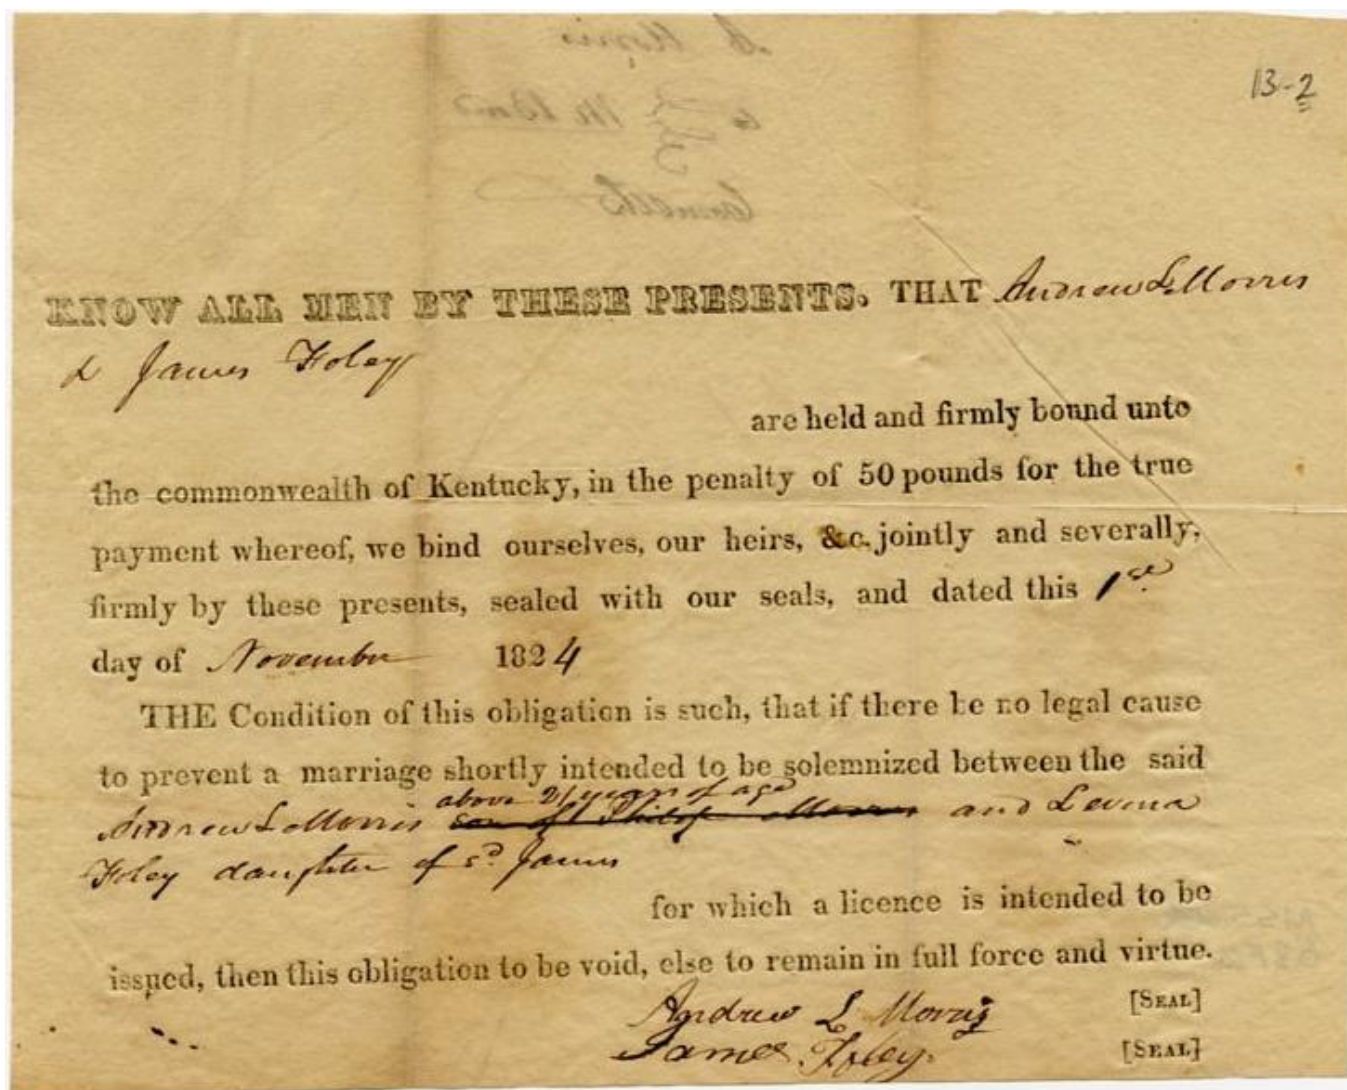 13-2
KNOW ALL MEN BY THESE PRESENTS, THAT Andrew L Morris
& James Foley
are held and firmly bound unto
the commonwealth of Kentucky, in the penalty of 50 pounds for the true
payment whereof, we bind ourselves, our heirs, &c. jointly and severally,
firmly by these presents, sealed with our seals, and dated this 1st
day of November 1824
THE Condition of this obligation is such, that if there be no legal cause
to prevent a marriage shortly intended to be solemnized between the said
above 21 years of age
Andrew L Morris son of Philip Morris and Levina
Foley daughter of sd. James
for which a licence is intended to be
issued, then this obligation to be void, else to remain in full force and virtue.
Andrew L Morris [SEAL]
James Foley. [SEAL]